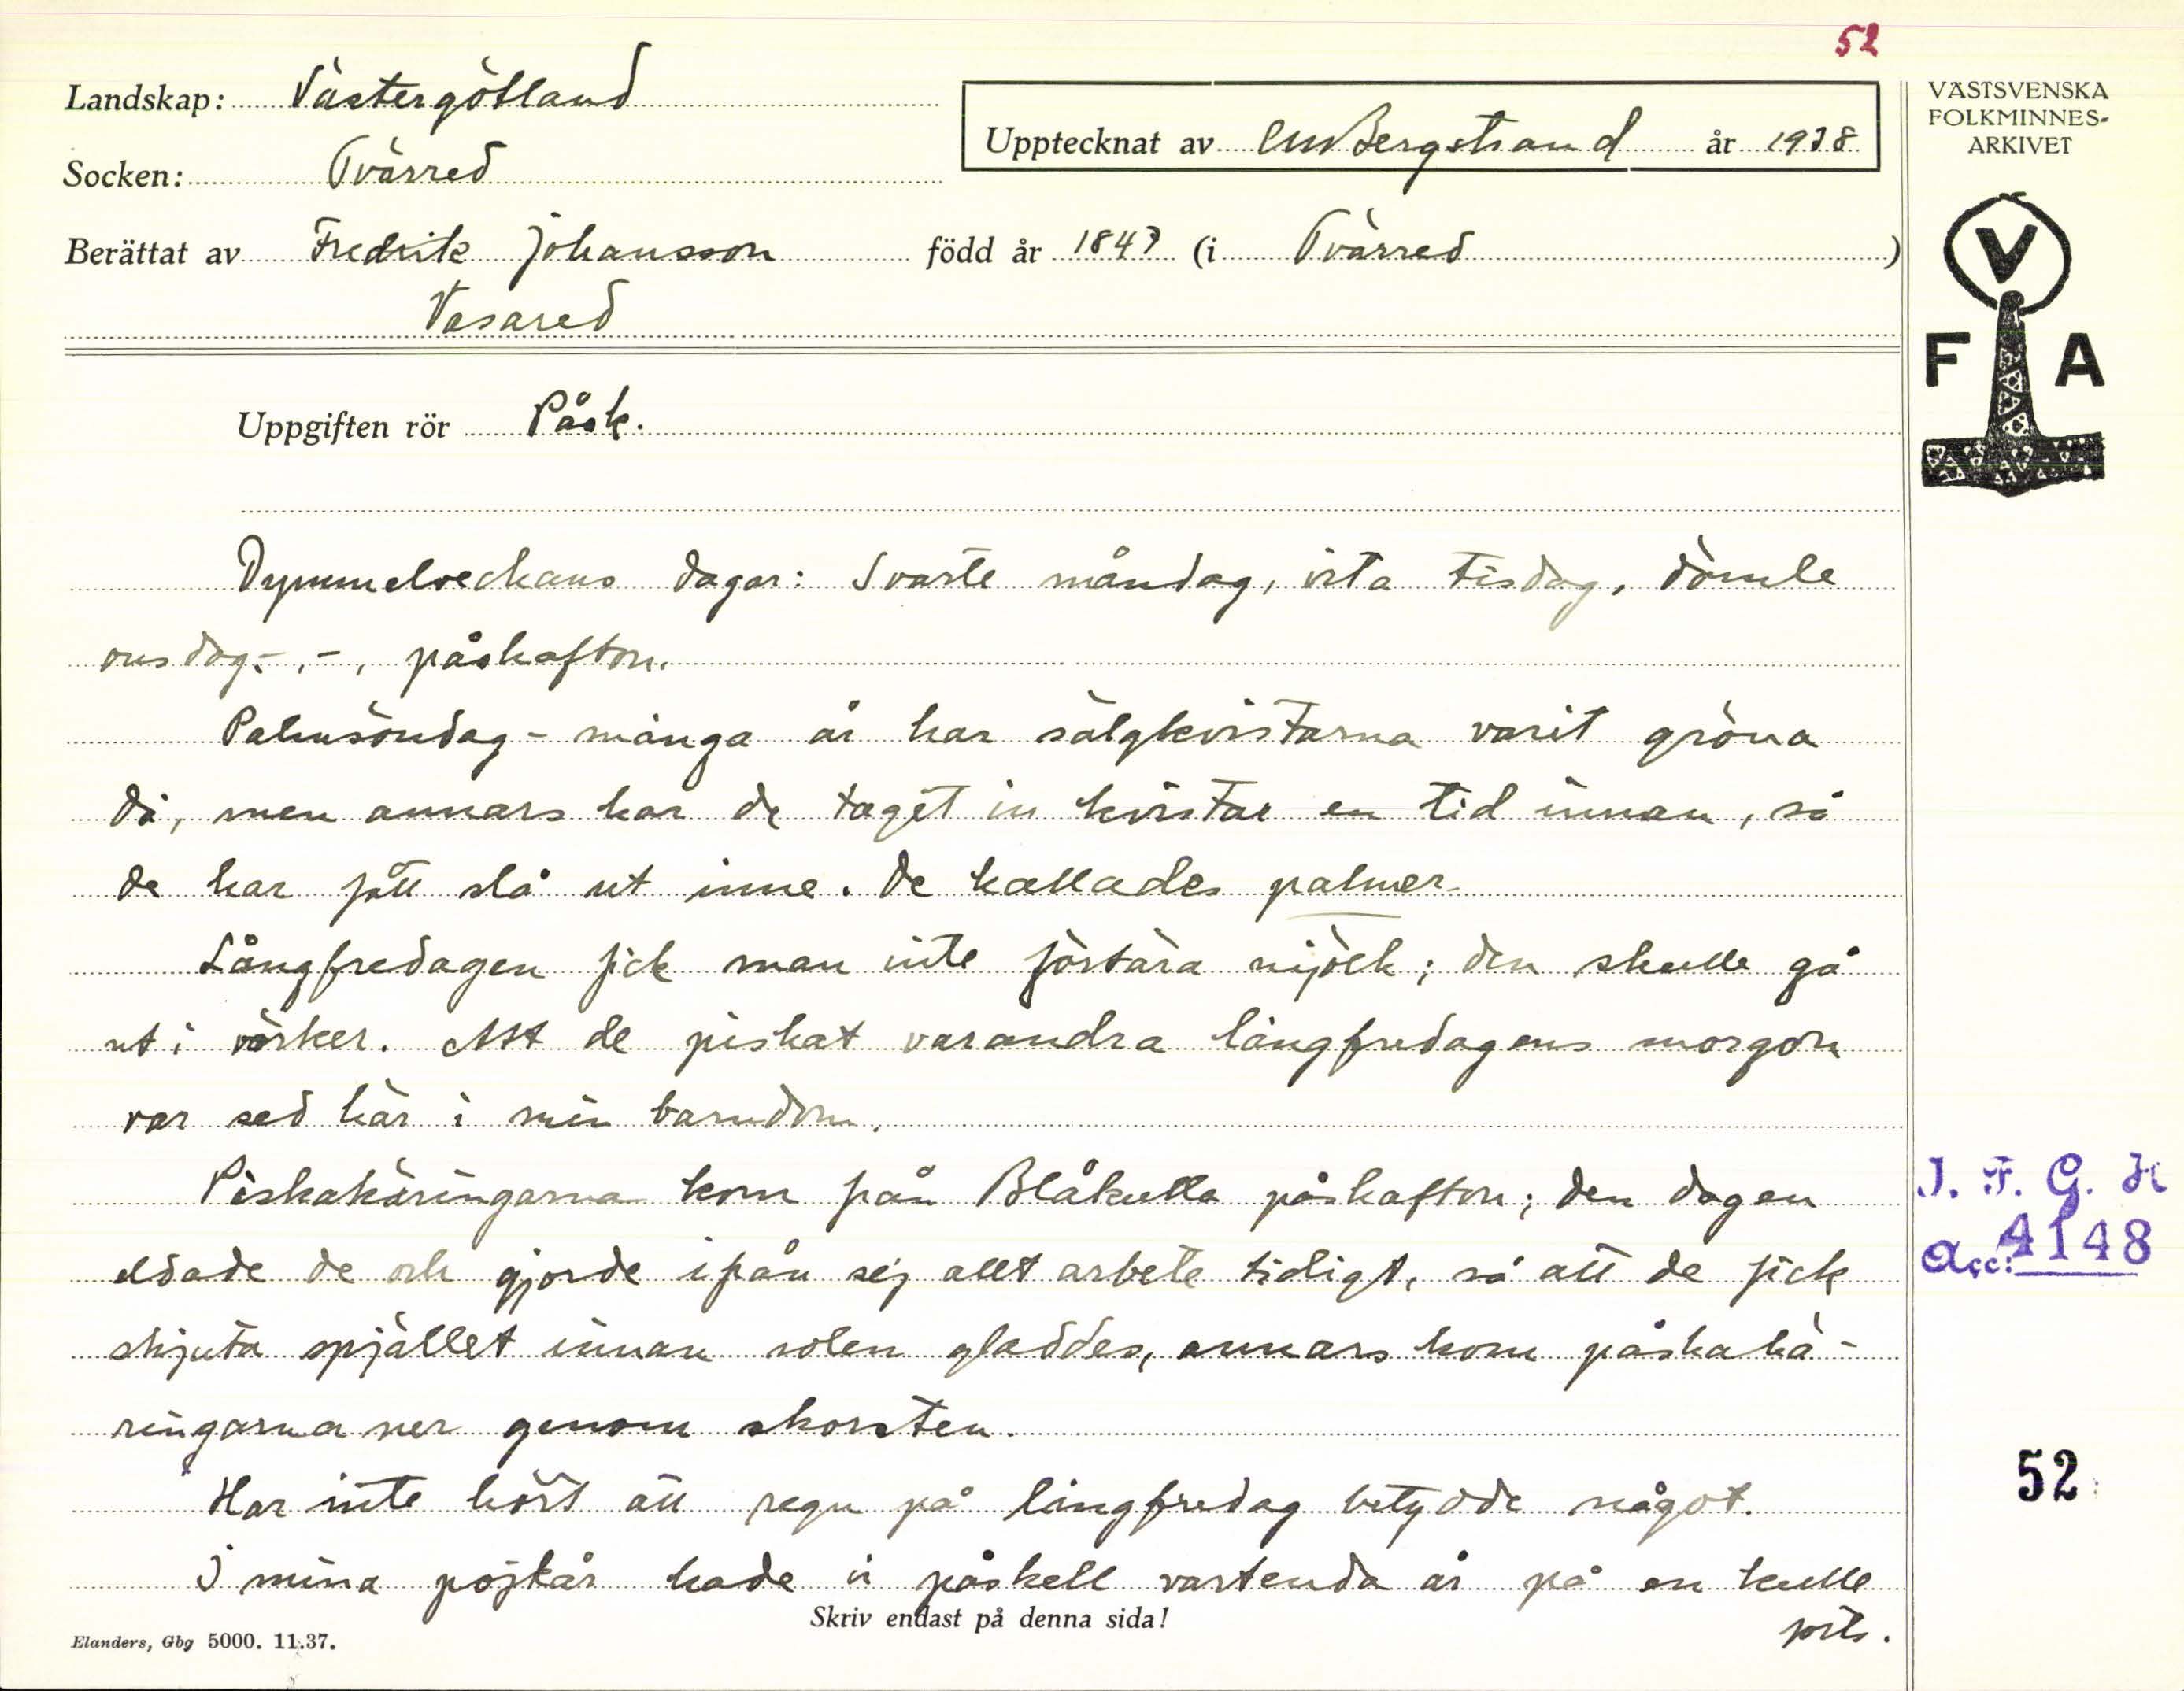 52
Landskap: Västergötland
Upptecknat av CM Bergstrand år 1938
Socken: Tvärred
Berättat av Fredrik Johansson född år 1847 (i Tvärred)
Vasared
VÄSTSVENSKA
FOLKMINNES-
ARKIVET
V
F A
Uppgiften rör Påsk.
Dymmelveckans dagar: Svarte måndag, vita tisdag, dömle
onsdag -, -, påskafton.
Palmsöndag - många år har sälgkvistarna varit gröna
då, men annars har de taget in kvistar en tid innan, så
de har fått slå ut inne. De kallades palmer.
Långfredagen fick man inte förtära mjölk; den skulle gå
ut i värker. Att de piskat varandra långfredagens morgon
var sed här i min barndom.
Påskakäringarna kom från Blåkulla påskafton; den dagen
eldade de och gjorde ifrån sej allt arbete tidigt, så att de fick
skjuta spjället innan solen gladdes, annars kom påskakä-
ringarna ner genom skorsten.
Har inte hört att regn på långfredag betydde något.
I mina pojkår hade vi påskell vartenda år på en kulle
forts.
Skriv endast på denna sida!
Elanders, Gbg 5000. 11.37.
I. F. G. H
Acc: 4148
52